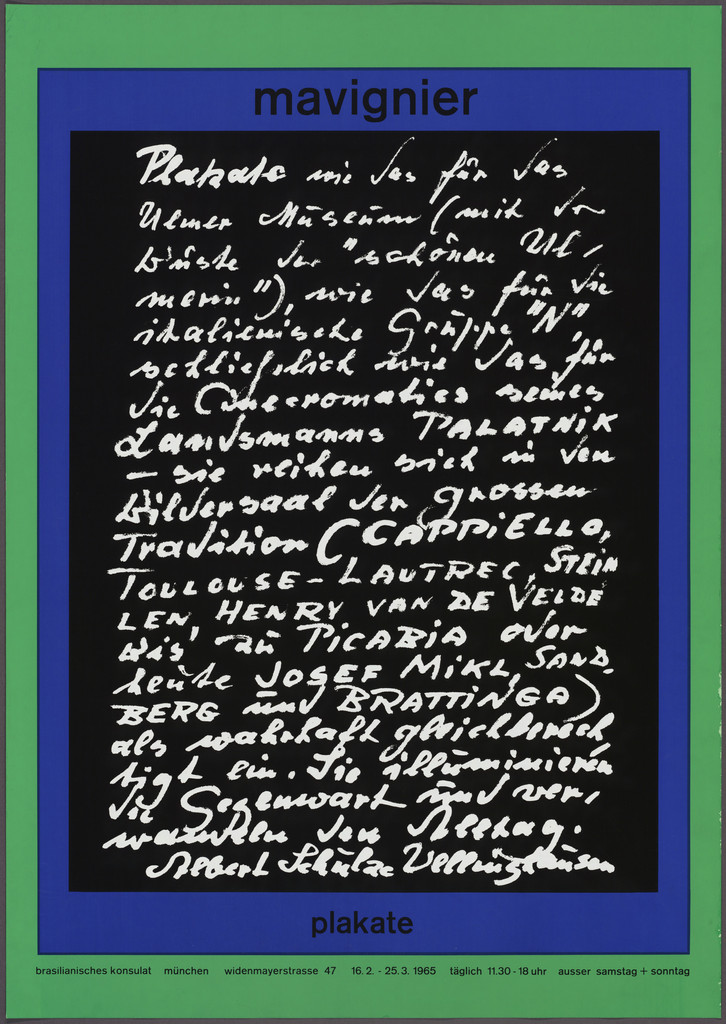 mavignier
Plakate wie das für das
Ulmer Museum (mit der
büste der "schönen Ul,
merin"), wie das für die
italienische Gruppe "N",
schließlich wie das für
die Cinecromatics seines
Landsmanns PALATNIK
– sie reihen sich in den
Bildersaal der grossen
Tradition (CCAPPiELLO,
TOULOUSE-LAUTREC, STEIN
LEN, HENRY VAN DE VELDE
bis' zu PiCABiA oder
heute JOSEF MiKL, SAND,
BERG und BRATTiNGA)
als wahrhaft gleichberech,
tigt ein. Sie illuminieren
die Gegenwart und ver,
wandeln den Alltag.
Albert Schulze Vellinghausen
plakate
brasilianisches konsulat münchen widenmayerstrasse 47 16.2. - 25.3. 1965 täglich 11.30 - 18 uhr ausser samstag + sonntag